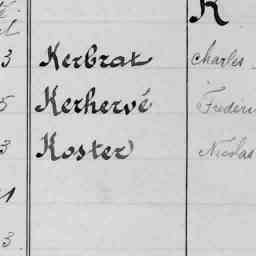 K
3 Kerbrat Charles
5 Kerhervé Frédéri
3 Koster Nicolas
1
3